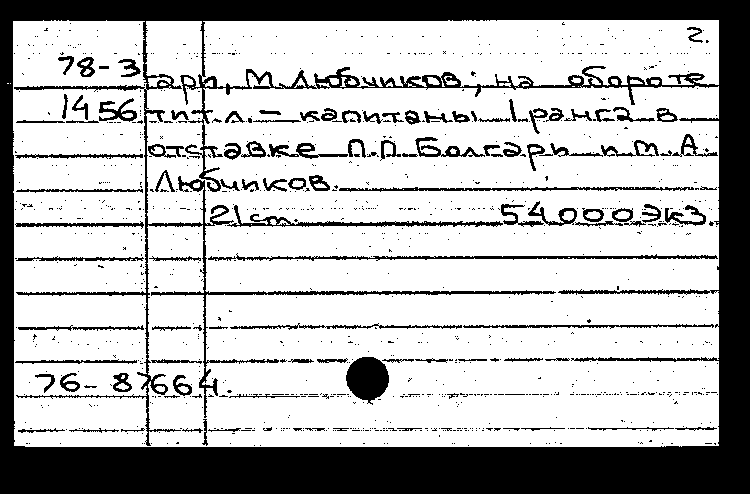 2.
78-3 гари, М. Любчиков; на обороте
1456 тит.л. - капитаны 1 ранга в
отставке П.П Болгари и М.А.
Любчиков.
21 ст. 54000экз.
76-87664.